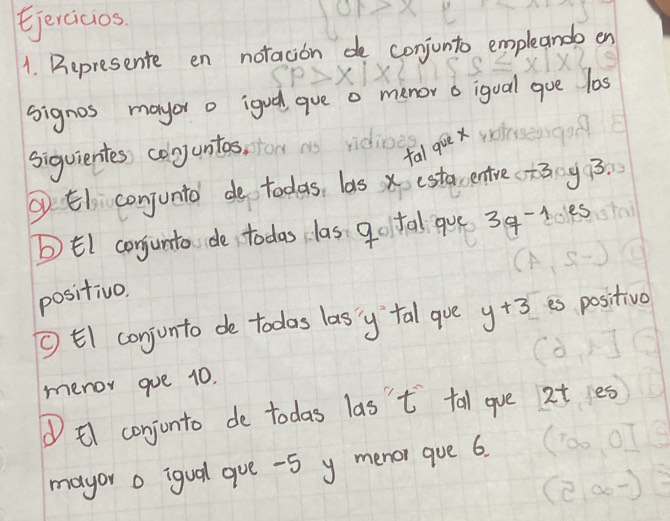 Ejercicios.
1. Represente en notación de conjunto empleando en
signos mayor o igual que o menor o igual que los
siguientes conjuntos.
tal que x
a) El conjunto de todas las x esta entre -3 y 3.
b) El conjunto de todas las q tal que 3q-1 es
positivo.
c) El conjunto de todas las "y" tal que y+3 es positivo
menor que 10.
d) El conjunto de todas las "t" tal que 2t es
mayor o igual que -5 y menor que 6.